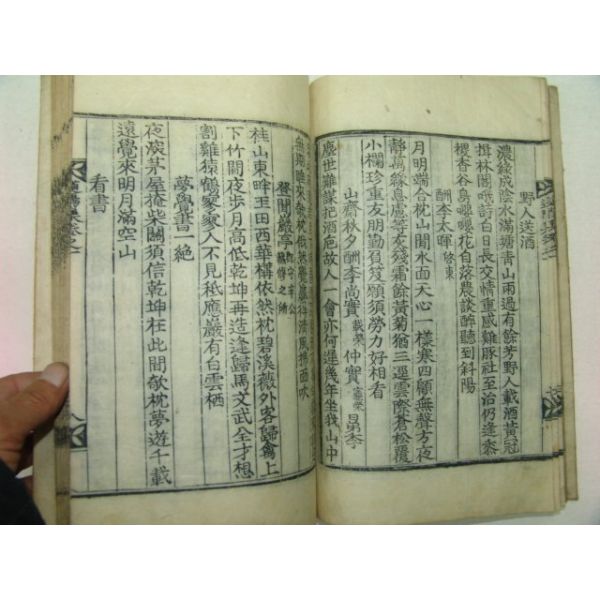 野人送酒
濃綠成陰水滿塘青山雨過有餘芳野人載酒黃冠
揖林閣哦詩白日長交情重感雞豚社至治仍逢黍
稷香谷鳥嚶嚶花自落農談醉聽到斜陽
酬李太暉
月明端合枕山閣水面天心一樣寒四顧無聲方夜
靜萬緣息慮等灰殘霜餘黃菊猶三逕雲際蒼松覆
小欄珍重友朋勤負笈願須勞力好相看
山齋秋夕酬李尚實 仲實
塵世難謀把酒巵故人一會亦何遲幾年坐我山中
登聞巖亭
桂山東畔玉田西華構依然枕碧溪薇外客歸禽上
下竹間夜步月高低乾坤再造逢歸馬文武全才想
割雞猿鶴寥寥人不見秪應巖有白雲栖
夢覺書一絶
夜淡茅屋掩柴關須信乾坤在此間欹枕夢遊千載
遠覺來明月滿空山
看書